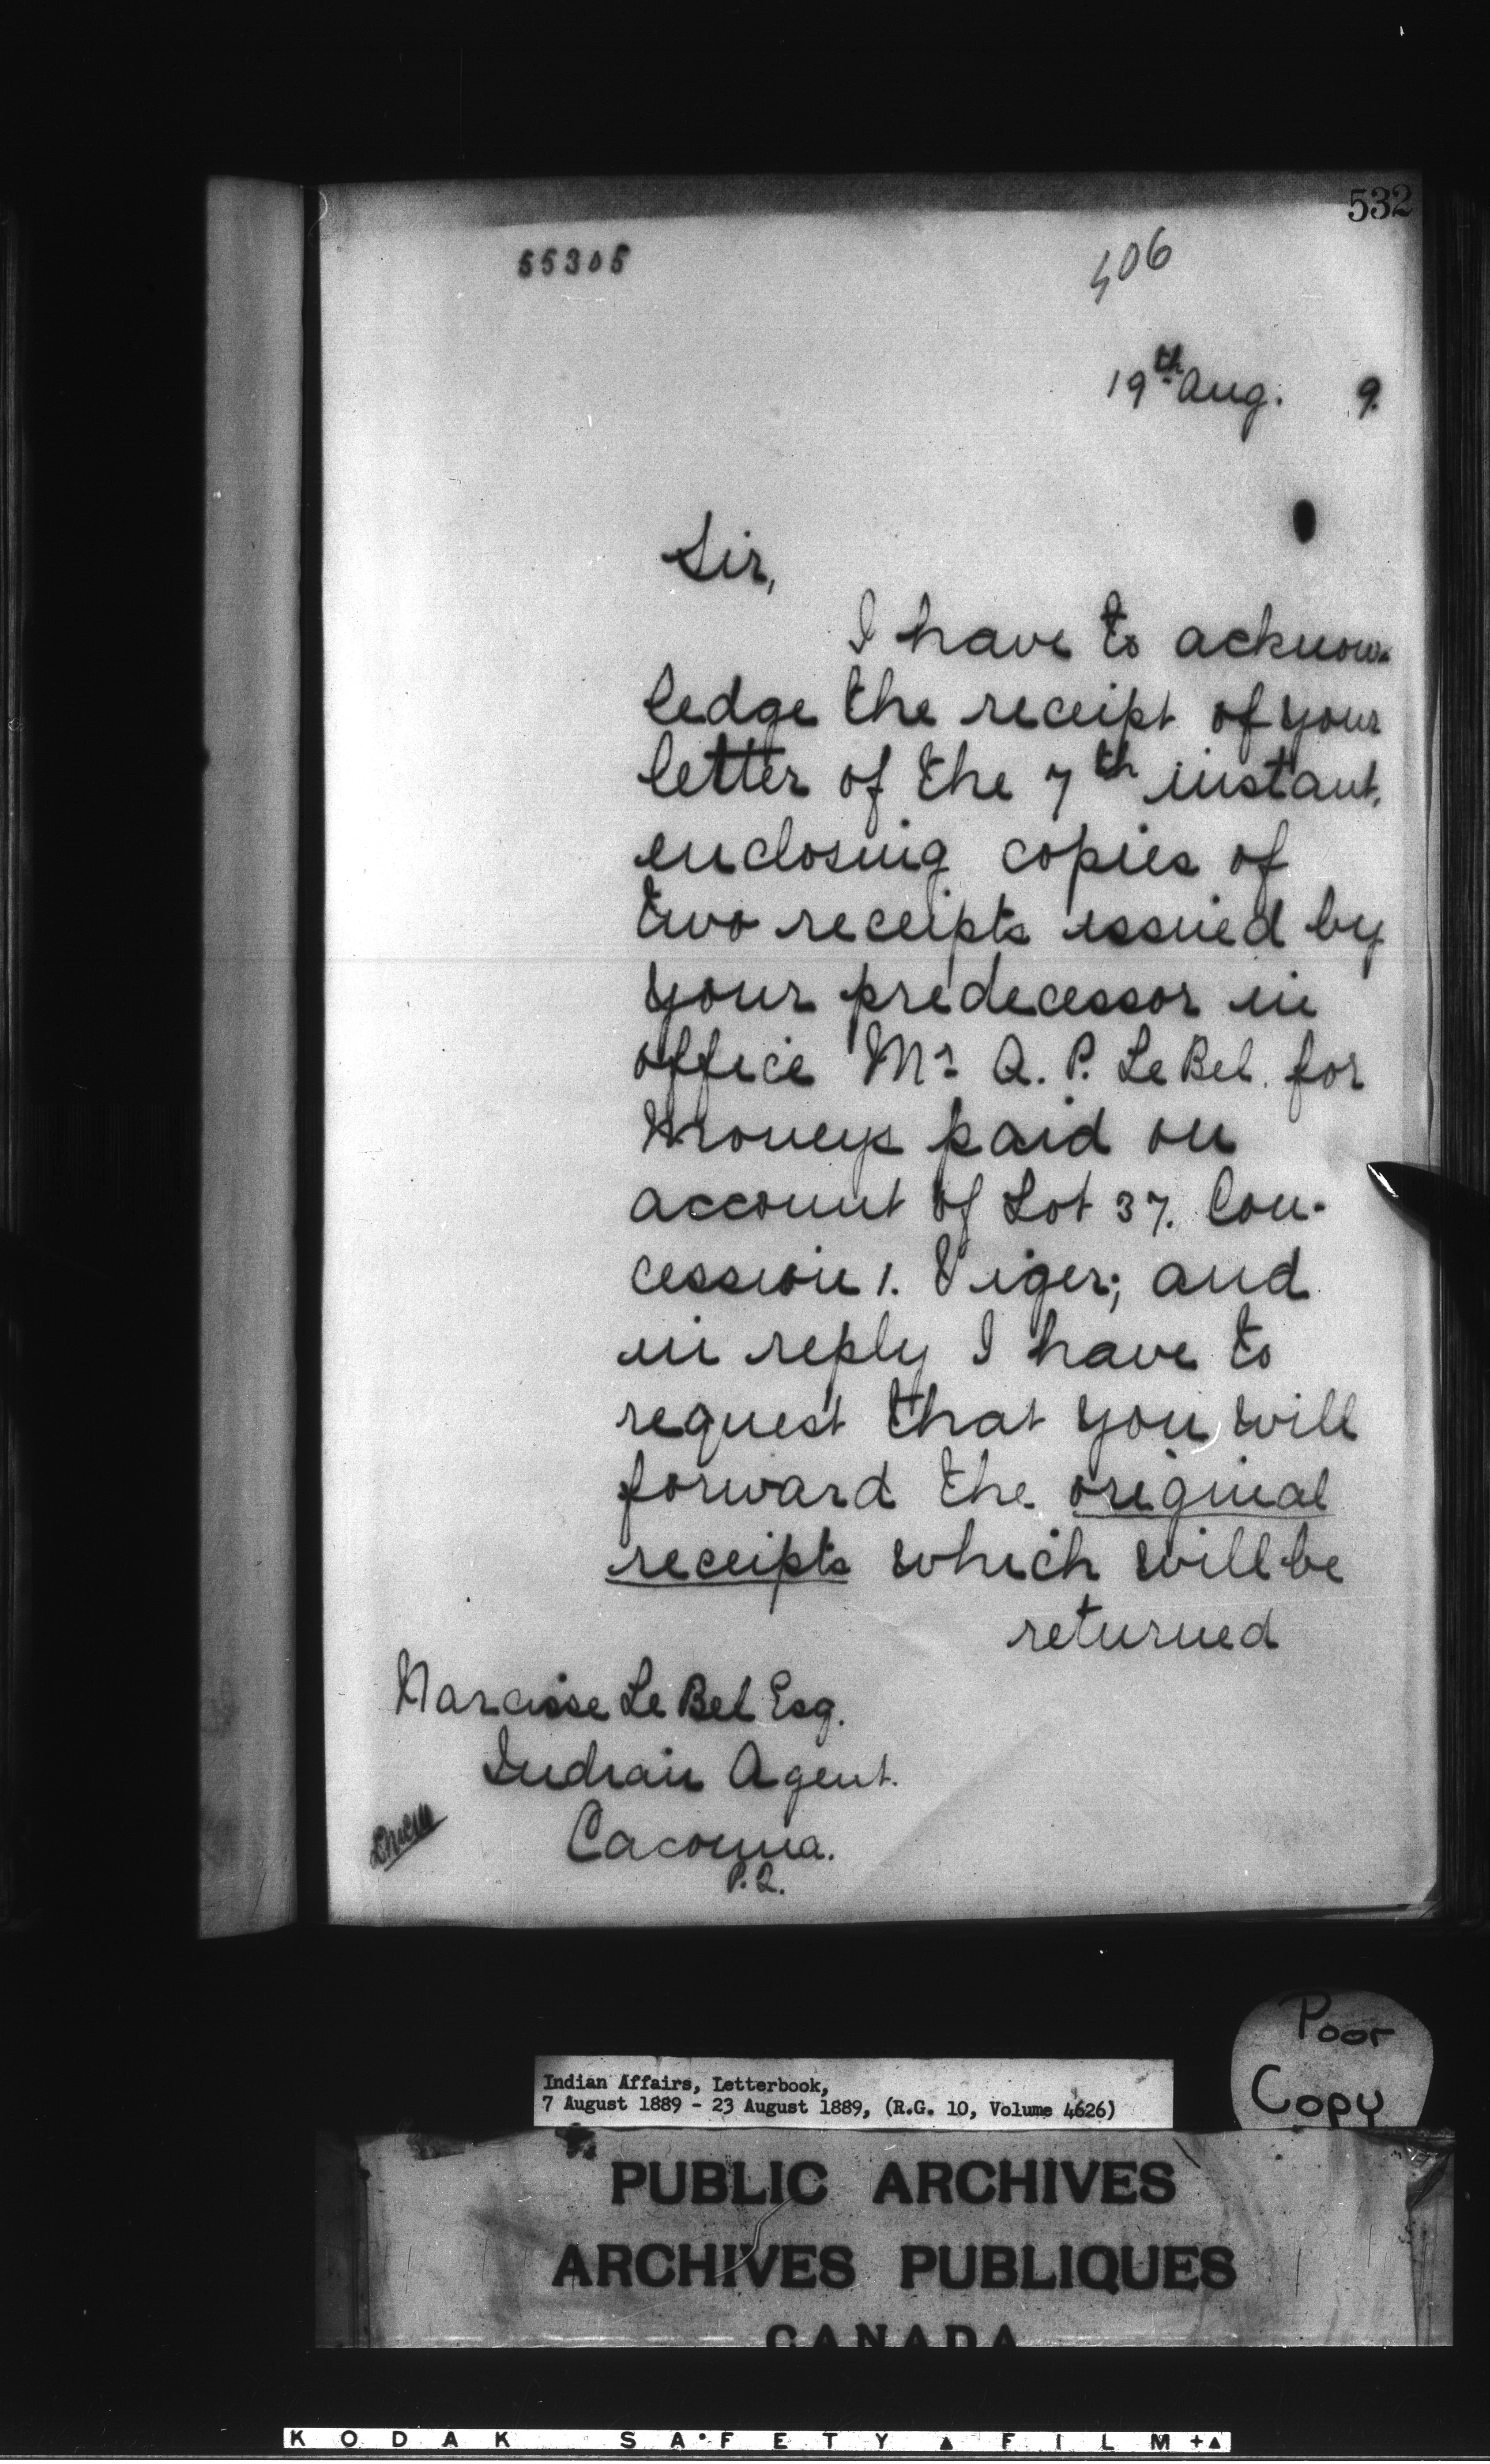 532
55305
406
19th Aug. 9.
Sir,
I have to acknow-
ledge the receipt of your
letter of the 7th instant,
enclosing copies of
two receipts issued by
your predecessor in
office Mr A. P. Le Bel. for
moneys paid on
account of Lot 37. Con-
cession 1. Viger; and
in reply I have to
request that you will
forward the original
receipts which will be
returned
Narcisse Le Bel Esq.
Indian Agent.
Cacouna.
P.Q.
Poor
Copy
Indian Affairs, Letterbook,
7 August 1889 - 23 August 1889, (R.G. 10, Volume 4626)
PUBLIC ARCHIVES
ARCHIVES PUBLIQUES
CANADA
KODAK SAFETY FILM